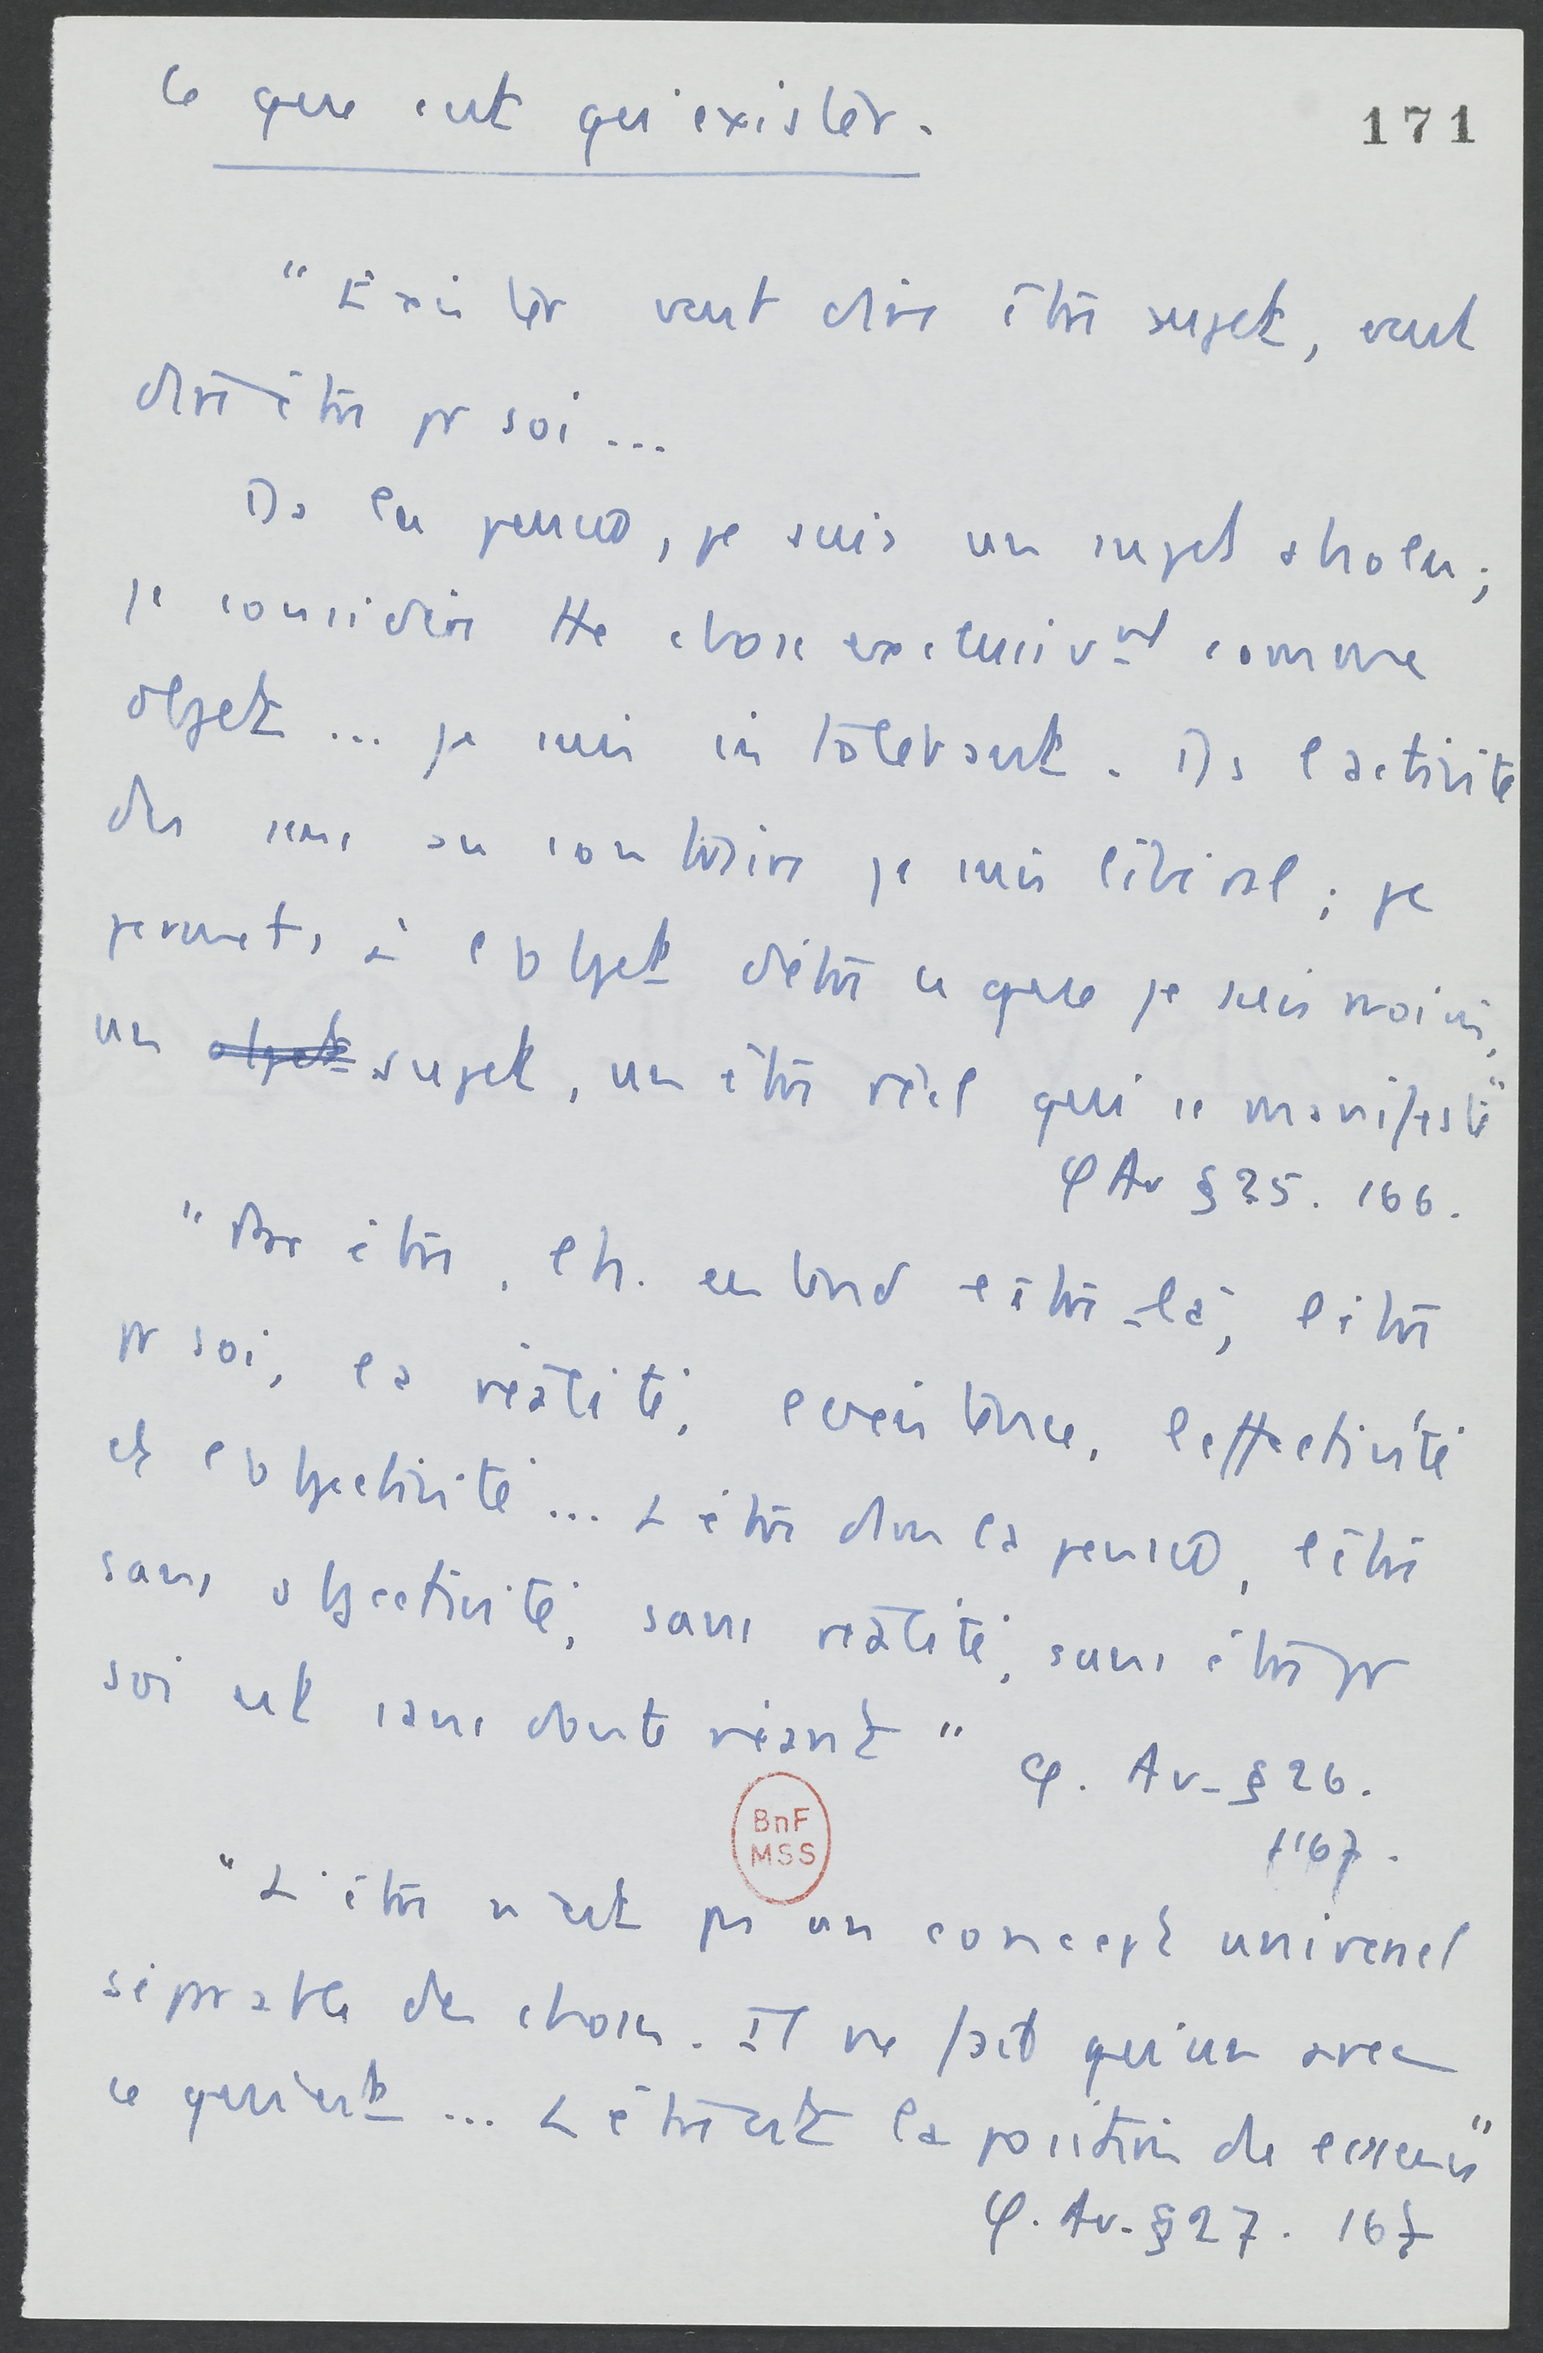 Ce que c'est qu'exister.
171
"Exister veut dire être sujet, veut
dire être pr soi...
Ds la pensée, je suis un sujet absolu;
je considère tte chose exclusivmt comme
objet... je suis intolérant. Ds l'activité
des sens au contraire je suis libéral; je
permets à l'objet d'être ce que je suis moi-m,
un objet sujet, un être réel qui se manifeste"
φ Av § 25. 166.
"Par être, l'h. entend l'être-là, l'être
pr soi, la réalité, l'existence, l'effectivité
et l'objectivité... L'être dans la pensée, l'être
sans objectivité, sans réalité, sans être pr
soi est sans doute néant" φ. Av. § 26.
167.
BnF
MSS
"L'être n'est pas un concept universel
séparable des choses. Il ne fait qu'un avec
ce qui est... L'être est la position de l'essence"
φ. Av. § 27. 167